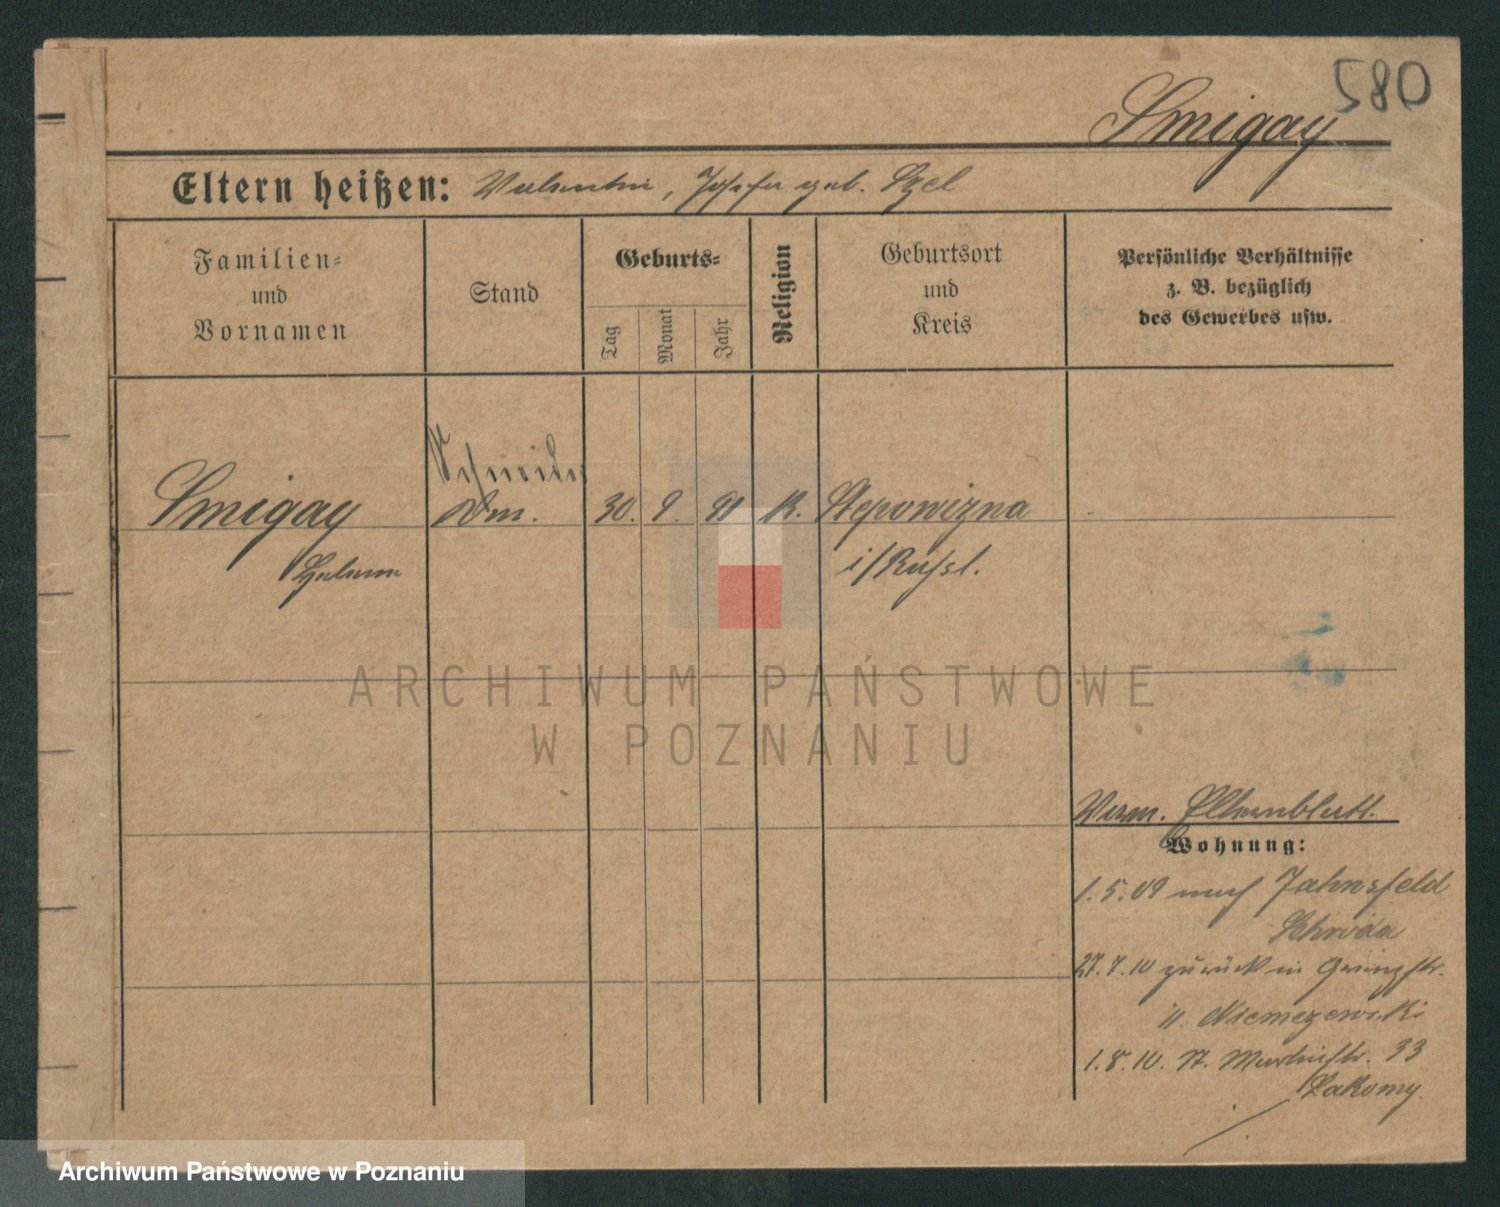 580
Smigay
Eltern heißen: Valentin, Josefa geb. Szel
Familien- und Vornamen
Stand
Geburts-
Tag
Monat
Jahr
Religion
Geburtsort und Kreis
Persönliche Verhältnisse
z. B. bezüglich
des Gewerbes usw.
Schneider
Smigay 30. 9. 91 K. Stepowizna
i/Russl.
ARCHIWUM PAŃSTWOWE
W POZNANIU
Verm. Elternblatt.
Wohnung:
1.5.09 nach Jahnsfeld
Schroda
27.7.10 zurück in Grenzstr.
Niemczewski
1.8.10. St. Martinstr. 33
Lakomy
Archiwum Państwowe w Poznaniu